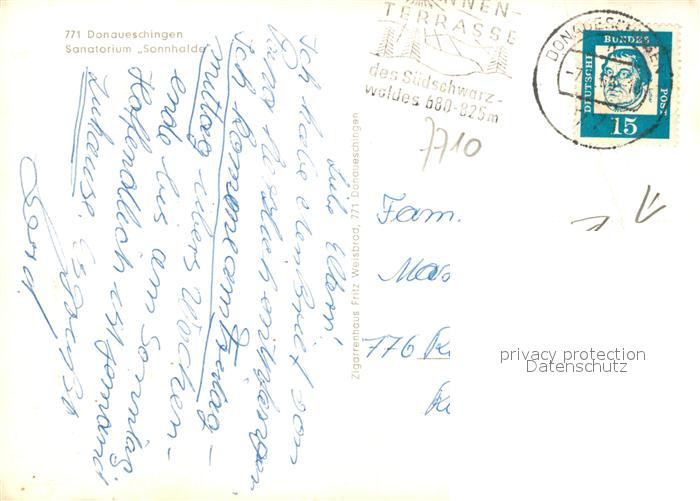 771 Donaueschingen
Sanatorium „Sonnhalde"
NNEN-
TERRASSE
des Südschwarz-
waldes 680-825m
DONAUESCHINGEN
DEUTSCHE BUNDESPOST
15
7710
Liebe Eltern!
Ich habe den Brief von
herzlich
Ich komme am Freitag-
mittag übers Wochen-
ende bis am Sonntag.
Hoffentlich ist jemand
zuhause. Es grüßt
Gerd.
Zigarrenhaus Fritz Weisbrod, 771 Donaueschingen
Fam.
Mas
776 R
privacy protection
Datenschutz